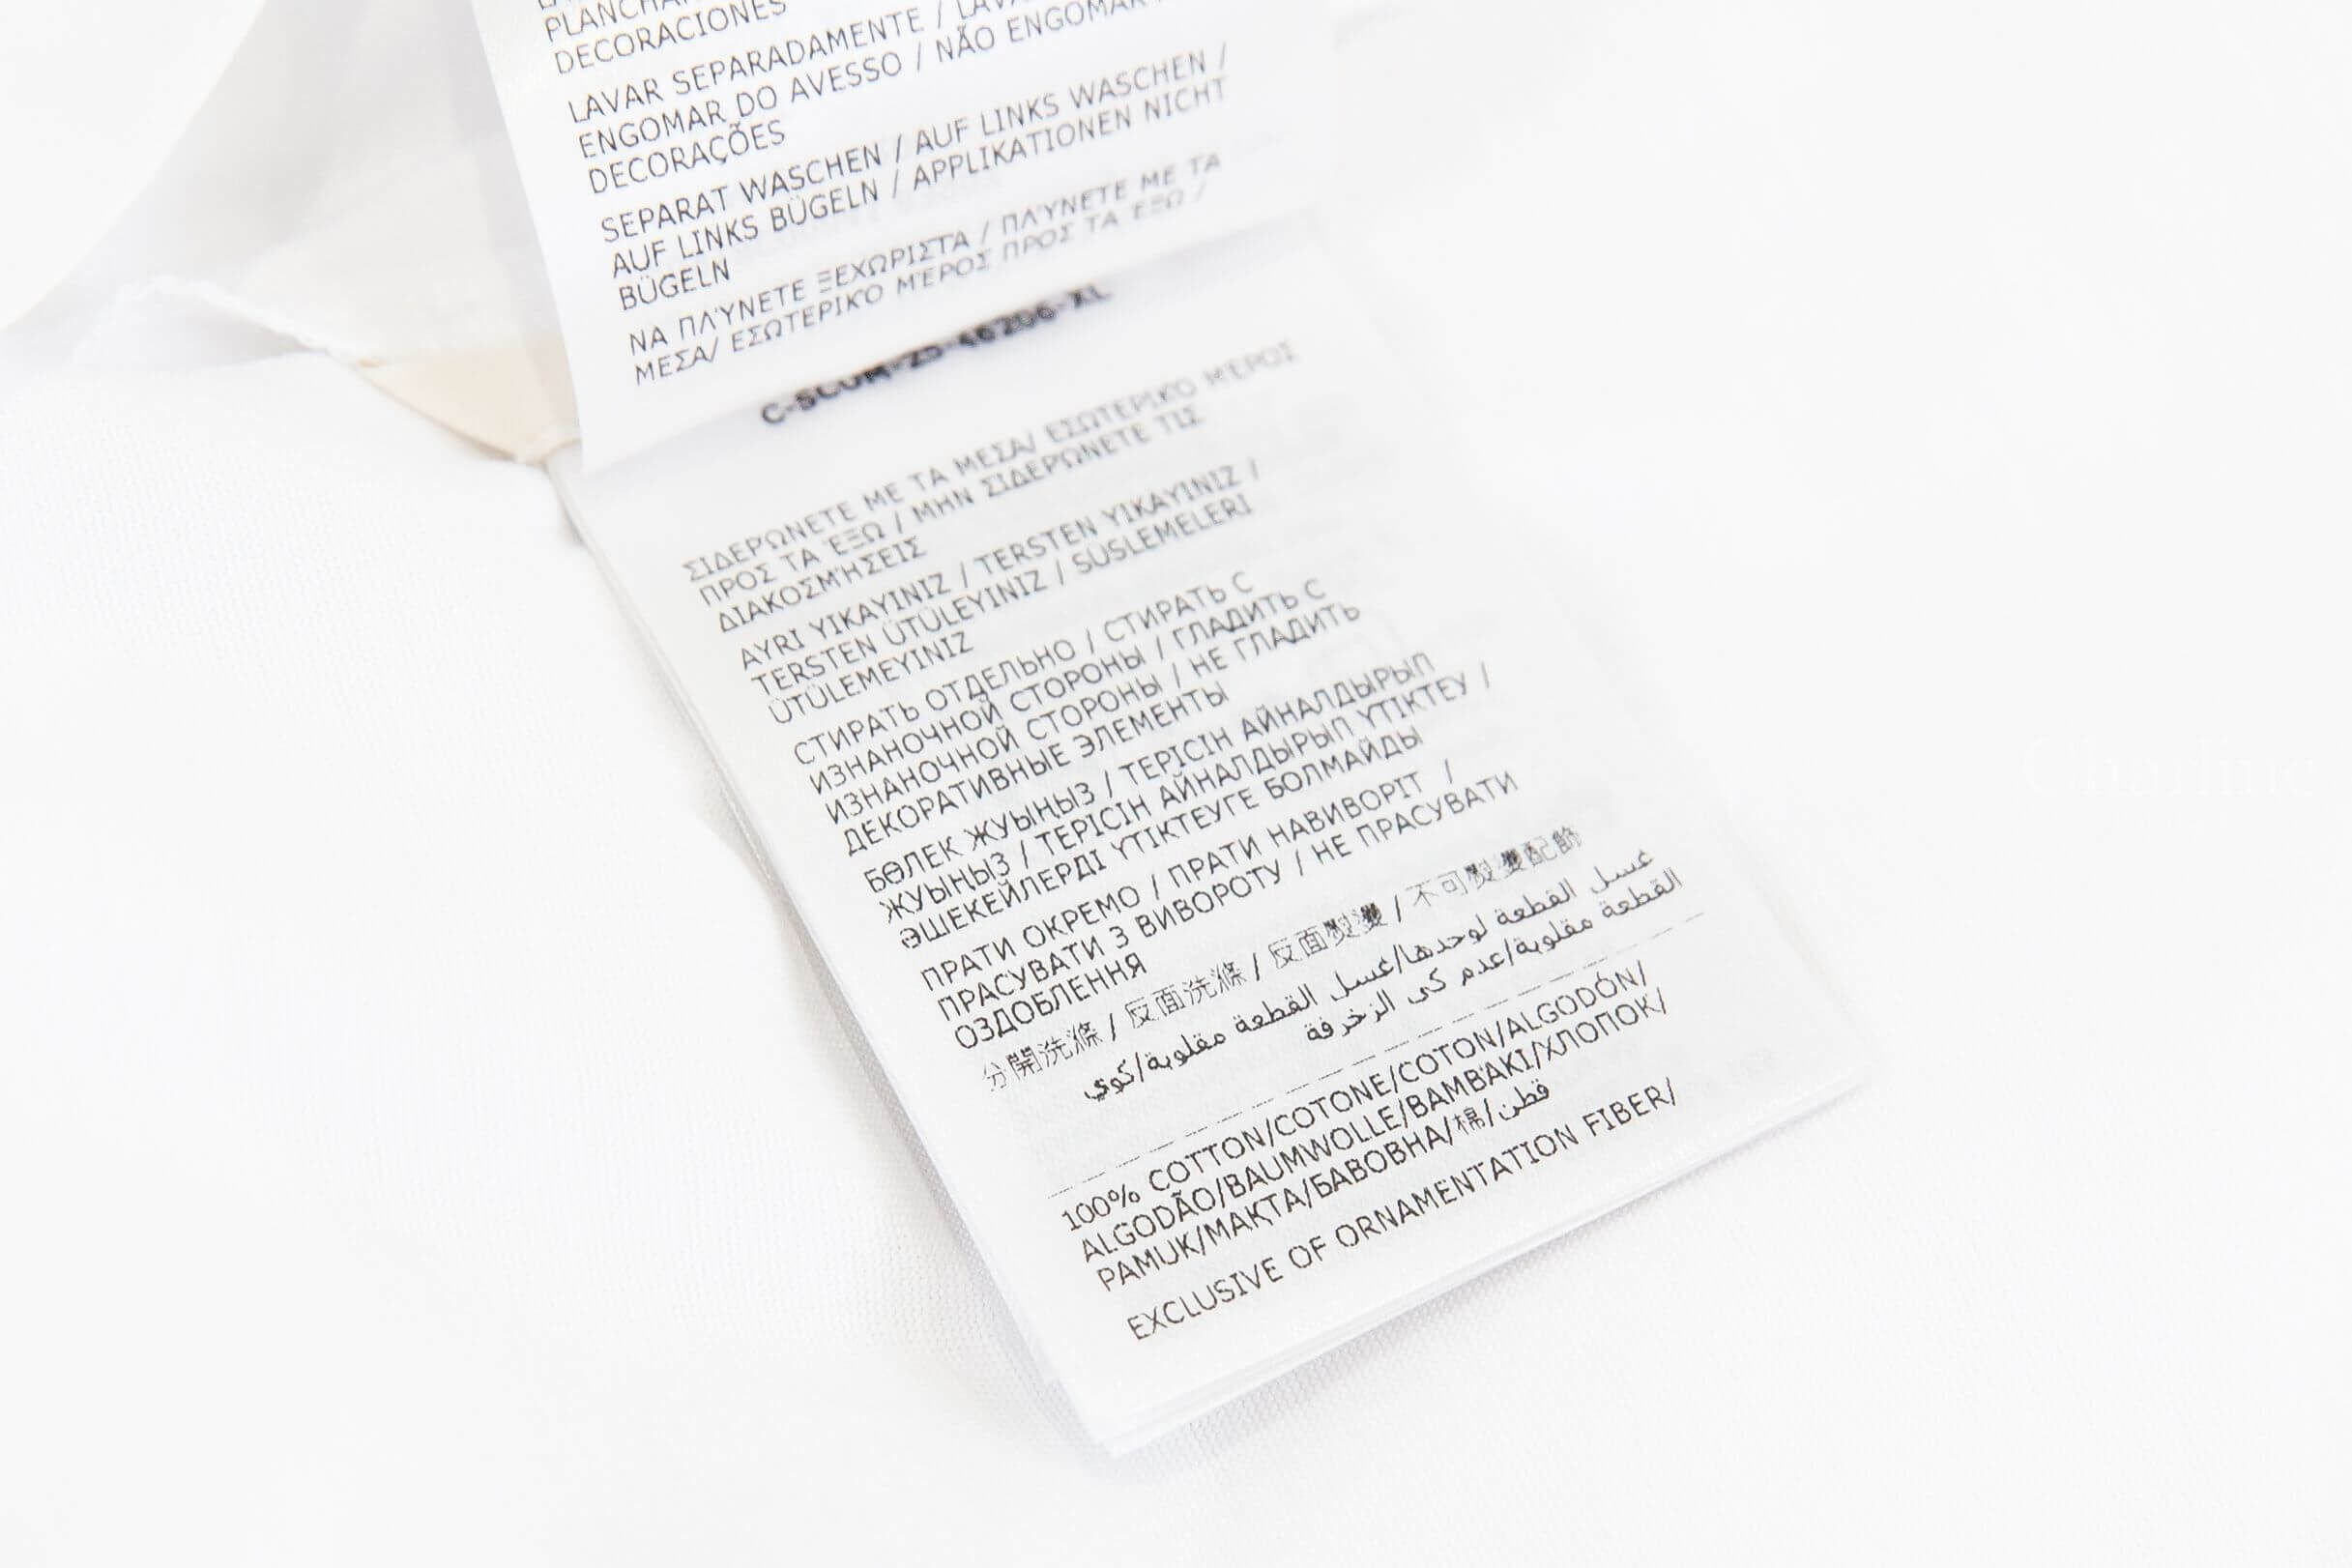 DECORACIONES
LAVAR SEPARADAMENTE /
ENGOMAR DO AVESSO / NÃO ENGOMAR
DECORAÇÕES
SEPARAT WASCHEN / AUF LINKS WASCHEN /
AUF LINKS BÜGELN / APPLIKATIONEN NICHT
BÜGELN
ΝΑ ΠΛΎΝΕΤΕ ΞΕΧΩΡΙΣΤΆ / ΠΛΎΝΕΤΕ ΜΕ ΤΑ
ΜΕΣΑ/ ΕΣΩΤΕΡΙΚΌ ΜΈΡΟΣ ΠΡΟΣ ΤΑ ΈΞΩ /
ΣΙΔΕΡΏΝΕΤΕ ΜΕ ΤΑ ΜΕΣΑ/ ΕΣΩΤΕΡΙΚΌ ΜΈΡΟΣ
ΠΡΟΣ ΤΑ ΈΞΩ / ΜΗΝ ΣΙΔΕΡΏΝΕΤΕ ΤΙΣ
ΔΙΑΚΟΣΜΉΣΕΙΣ
AYRI YIKAYINIZ / TERSTEN YIKAYINIZ /
TERSTEN ÜTÜLEYINIZ / SÜSLEMELERI
ÜTÜLEMEYINIZ
СТИРАТЬ ОТДЕЛЬНО / СТИРАТЬ С
ИЗНАНОЧНОЙ СТОРОНЫ / ГЛАДИТЬ С
ИЗНАНОЧНОЙ СТОРОНЫ / НЕ ГЛАДИТЬ
ДЕКОРАТИВНЫЕ ЭЛЕМЕНТЫ
БӨЛЕК ЖУЫҢЫЗ / ТЕРІСІН АЙНАЛДЫРЫП
ЖУЫҢЫЗ / ТЕРІСІН АЙНАЛДЫРЫП ҮТІКТЕУ /
ӘШЕКЕЙЛЕРДІ ҮТІКТЕУГЕ БОЛМАЙДЫ
ПРАТИ ОКРЕМО / ПРАТИ НАВИВОРІТ /
ПРАСУВАТИ З ВИВОРОТУ / НЕ ПРАСУВАТИ
ОЗДОБЛЕННЯ
分開洗滌 / 反面洗滌 / 反面熨燙 / 不可熨燙配飾
غسل القطعة لوحدها/غسل القطعة مقلوبة/كوي
القطعة مقلوبة/عدم كى الزخرفة
100% COTTON/COTONE/COTON/ALGODÓN/
ALGODÃO/BAUMWOLLE/ΒΑΜΒΆΚΙ/ХЛОПОК/
PAMUK/МАҚТА/БАВОВНА/棉/قطن
EXCLUSIVE OF ORNAMENTATION FIBER/